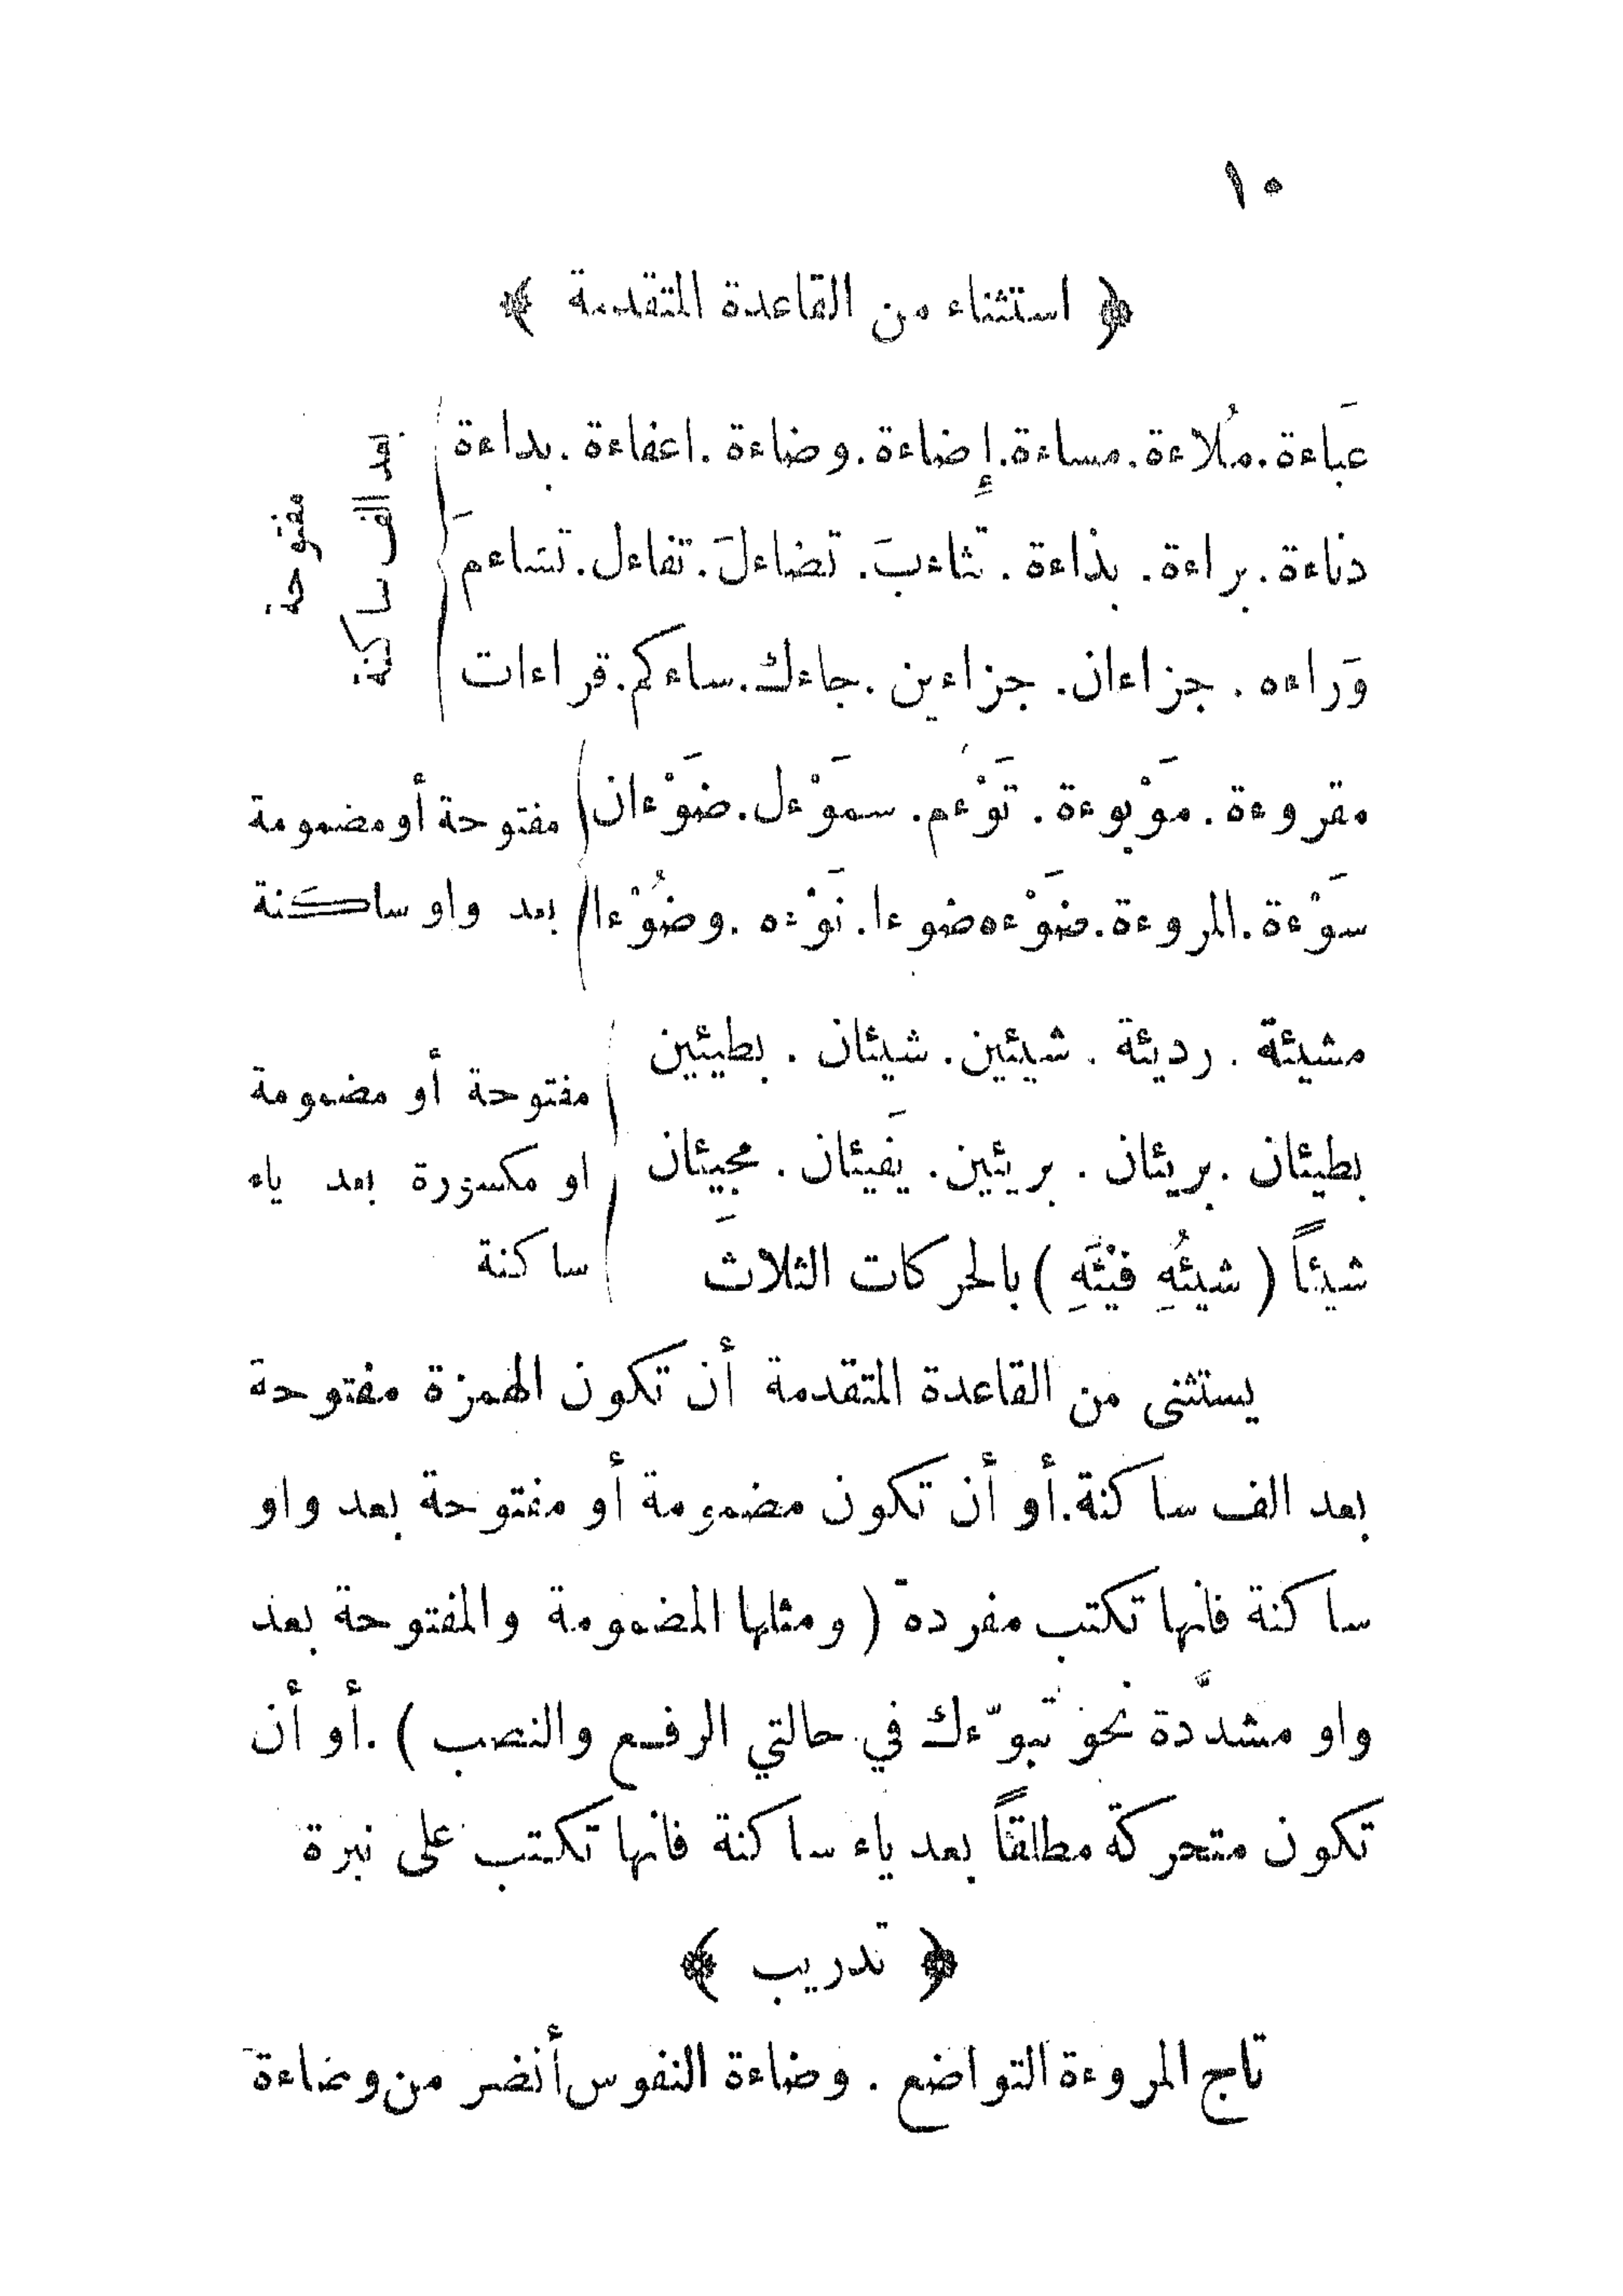 ١٠
﴿ استثناء من القاعدة المتقدمة ﴾
عَباءة.مُلاءة.مساءة.إِضاءة.وضاءة.اعفاءة.بداءة
دناءة.براءة. بذاءة. تثاءبَ. تضاءلَ.تفاءل.تشاءمَ
وَراءه. جزاءان. جزاءين.جاءك.ساءكم.قراءات
مفتوحة
بعد الف ساكنة
مقروءة. مَوْبوءة. تَوْءَم. سمَوْءل.ضَوْءان
سَوْءة.المروءة.ضَوْءه ضوءا. نَوْءه.وضُوْءا
مفتوحة أو مضمومة
بعد واو ساكنة
مشيئة. رديئة. شيئين. شيئان. بطيئين
بطيئان.بريئان. بريئين. يَفيئان. مجيئان
شيئاً ( شيئُهِ فيْئَهِ ) بالحركات الثلاثَ
مفتوحة أو مضمومة
او مكسورة بعد ياء
ساكنة
يستثنى من القاعدة المتقدمة أن تكون الهمزة مفتوحة
بعد الف ساكنة.أو أن تكون مضمومة أو مفتوحة بعد واو
ساكنة فانها تكتب مفردة ( ومثلها المضمومة والمفتوحة بعد
واو مشدَّدة نحو تبوّءك في حالتي الرفع والنصب ).أو أن
تكون متحركة مطلقاً بعد ياء ساكنة فانها تكتب على نبرة
﴿ تدريب ﴾
تاج المروءة التواضع. وضاءة النفوس أنضر من وضاءة